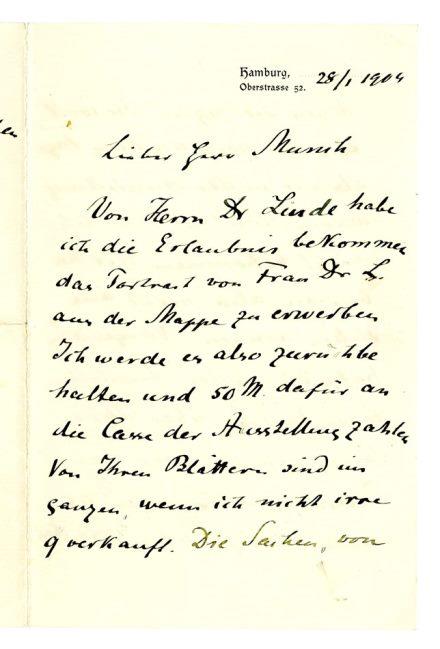 Hamburg,
Oberstrasse 52.
28/1 1904
Lieber Herr Munch
Von Herrn Dr Linde habe
ich die Erlaubnis bekommen
das Portrait von Frau Dr L.
aus der Mappe zu erwerben
Ich werde es also zurückbe
halten und 50 M. dafür an
die Casse der Ausstellung zahlen
Von Ihren Blättern sind im
ganzen, wenn ich nicht irre
9 verkauft. Die Sachen, von